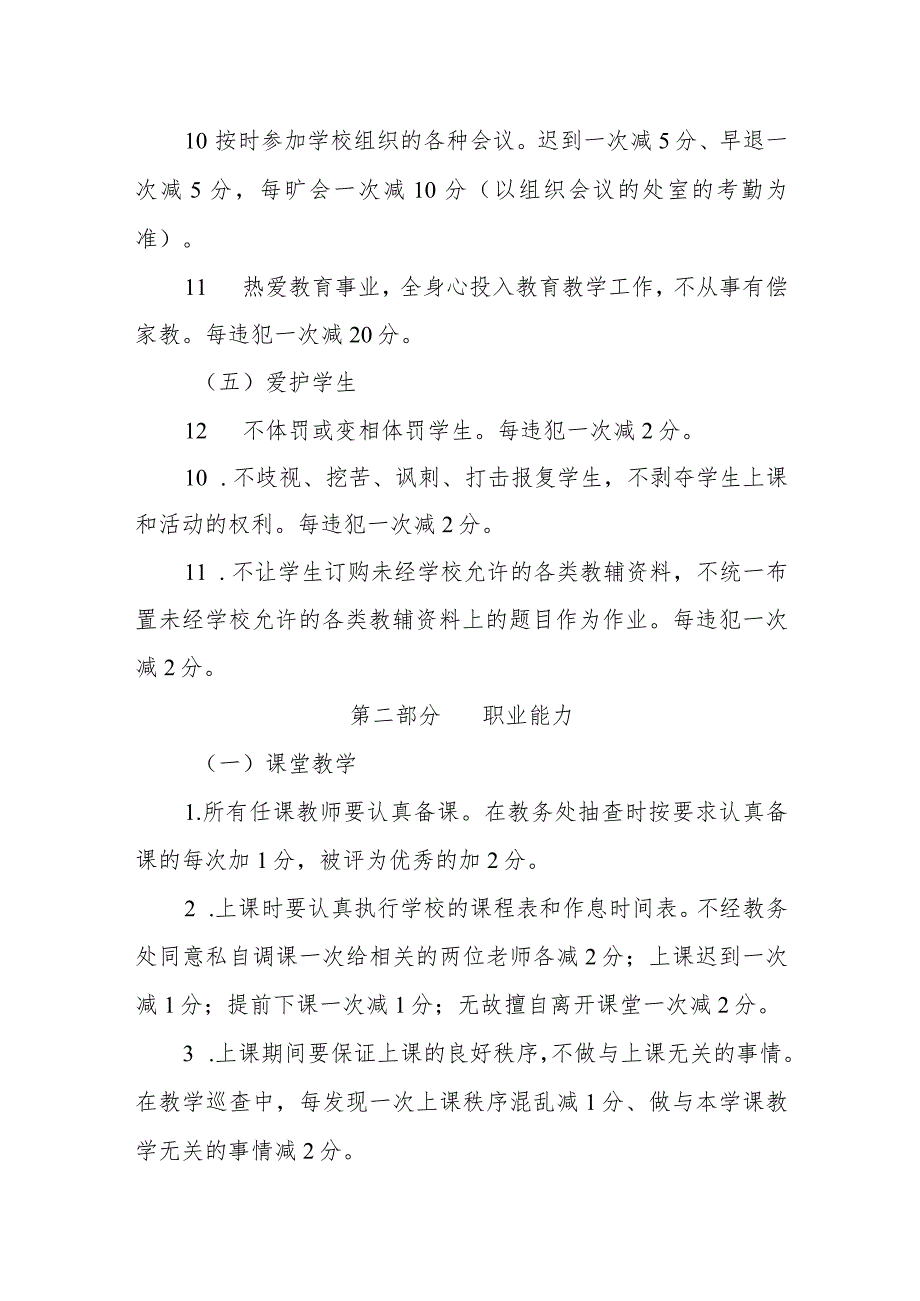 10按时参加学校组织的各种会议。迟到一次减5分、早退一
次减5分，每旷会一次减10分（以组织会议的处室的考勤为
准）。
11 热爱教育事业，全身心投入教育教学工作，不从事有偿
家教。每违犯一次减20分。
（五）爱护学生
12 不体罚或变相体罚学生。每违犯一次减2分。
10 .不歧视、挖苦、讽刺、打击报复学生，不剥夺学生上课
和活动的权利。每违犯一次减2分。
11 .不让学生订购未经学校允许的各类教辅资料，不统一布
置未经学校允许的各类教辅资料上的题目作为作业。每违犯一次
减2分。
第二部分 职业能力
（一）课堂教学
1.所有任课教师要认真备课。在教务处抽查时按要求认真备
课的每次加1分，被评为优秀的加2分。
2 .上课时要认真执行学校的课程表和作息时间表。不经教务
处同意私自调课一次给相关的两位老师各减2分；上课迟到一次
减1分；提前下课一次减1分；无故擅自离开课堂一次减2分。
3 .上课期间要保证上课的良好秩序，不做与上课无关的事情。
在教学巡查中，每发现一次上课秩序混乱减1分、做与本学课教
学无关的事情减2分。